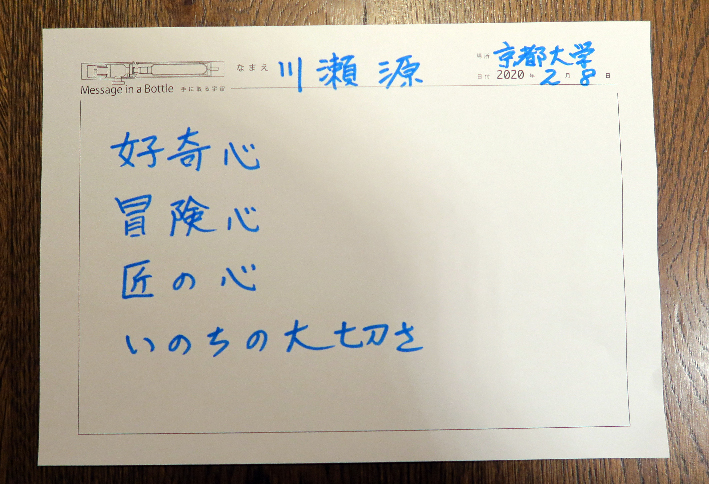 なまえ 川瀬源
場所 京都大学
日付 2020年2月8日
Message in a Bottle 手に取る宇宙
好奇心
冒険心
匠の心
いのちの大切さ